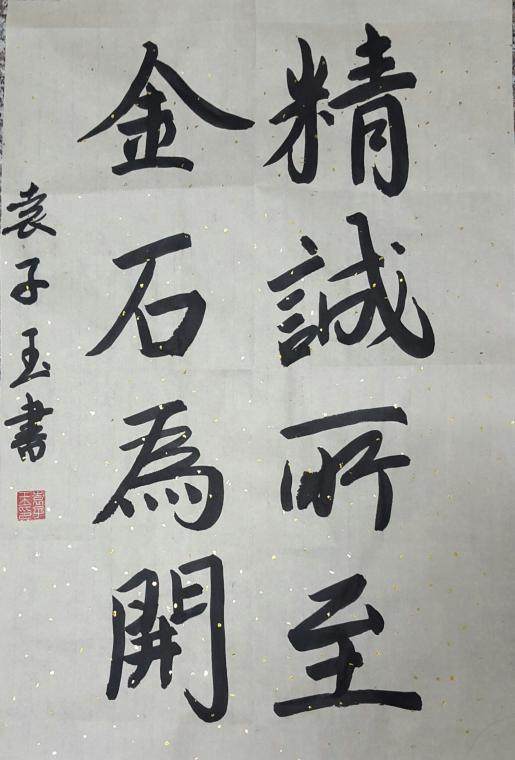 精誠所至
金石為開
袁子玉書